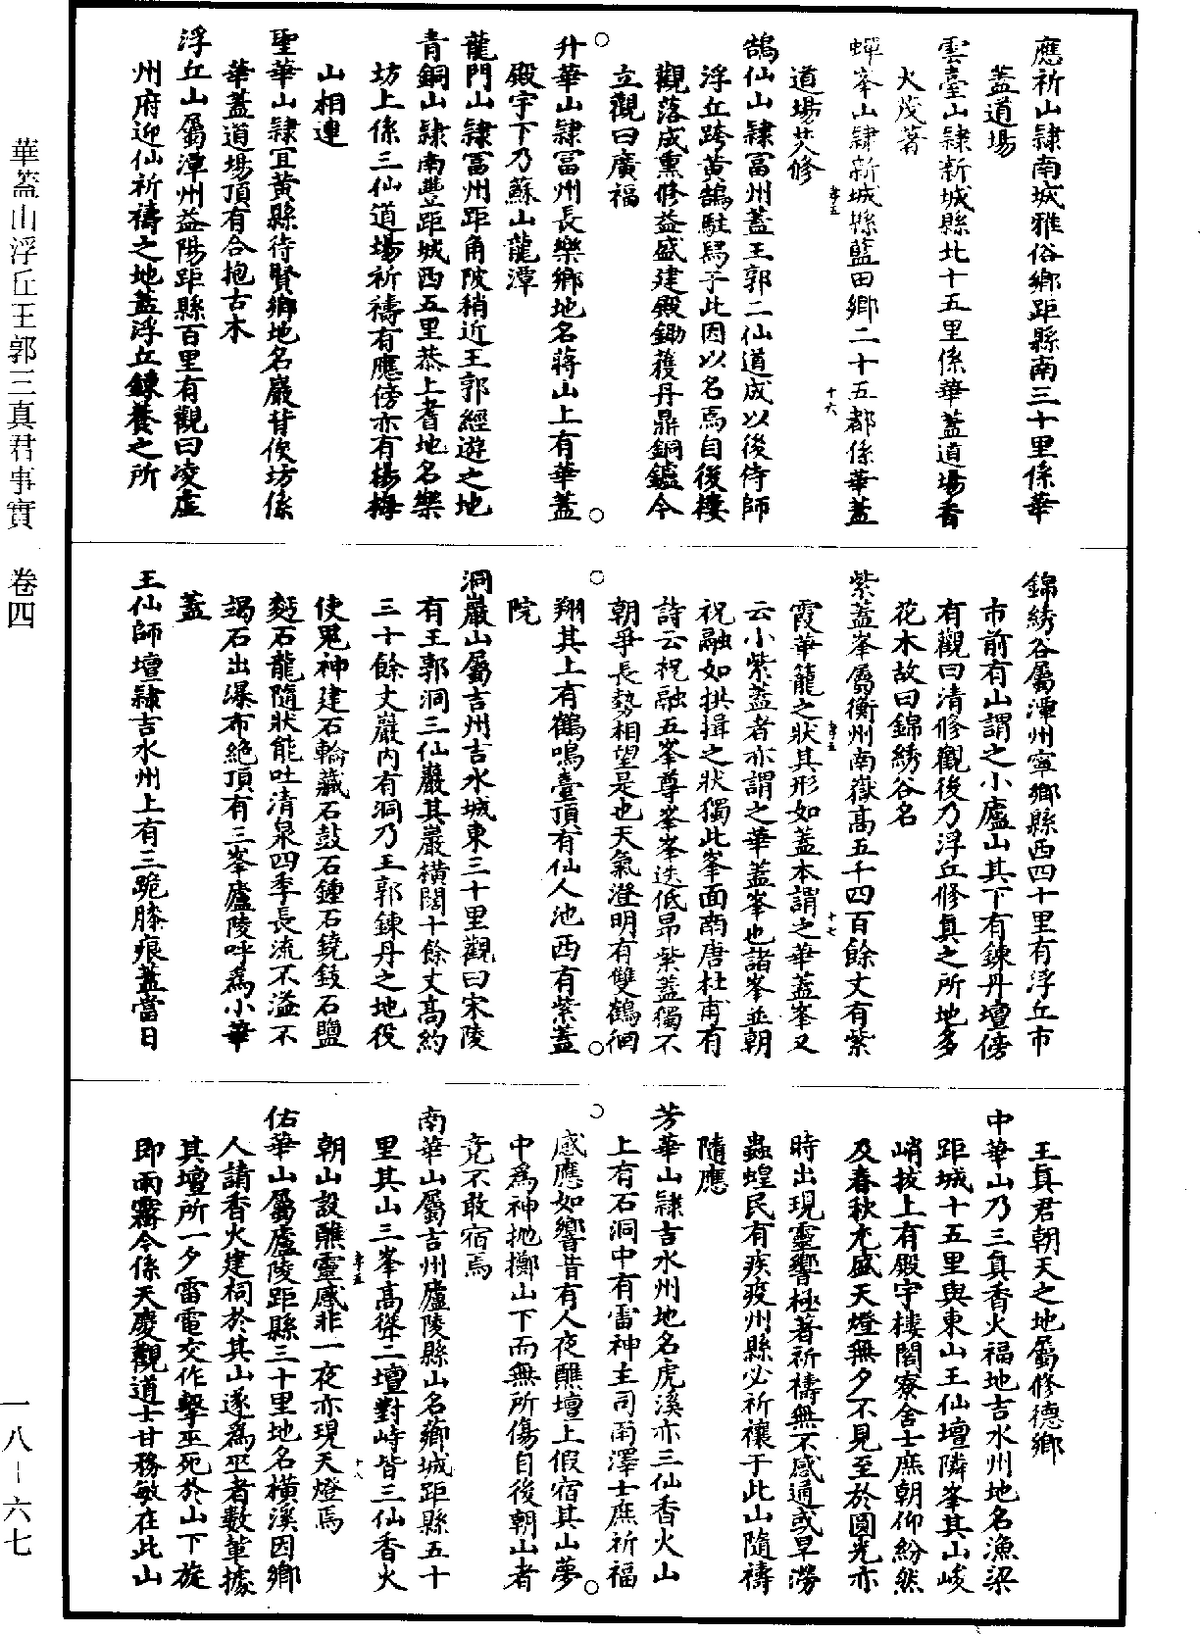 應祈山隸南城雅俗鄉距縣南三十里係華
蓋道場
雲臺山隸新城縣北十五里係華蓋道場香
火茂著
蟬峯山隸新城縣藍田鄉二十五都係華蓋
道場焚修
鵠仙山隸富州蓋王郭二仙道成以後侍師
浮丘跨黃鵠駐舄于此因以名焉自後棲
觀落成熏修益盛建殿鋤穫丹鼎銅鑪今
立觀曰廣福
升華山隸冨州長樂鄉地名蔣山上有華蓋
殿宇下乃蘇山龍潭
龍門山隸冨州距角陂稍近王郭經遊之地
青銅山隸南豐距城西五里恭上耆地名樂
坊上係三仙道場祈禱有應傍亦有楊梅
山相連
聖華山隸宜黃縣待賢鄉地名巖背侯坊係
華蓋道場頂有合抱古木
浮丘山屬潭州益陽距縣百里有觀曰凌虛
州府迎仙祈禱之地蓋浮丘鍊養之所
錦綉谷屬潭州寧鄉縣西四十里有浮丘市
市前有山謂之小廬山其下有鍊丹壇傍
有觀曰清修觀後乃浮丘修真之所地多
花木故曰錦綉谷名
紫蓋峯屬衡州南嶽高五千四百餘丈有紫
霞華籠之狀其形如蓋本謂之華蓋峯又
云小紫蓋者亦謂之華蓋峯也諸峯並朝
祝融如拱揖之狀獨此峯面南唐杜甫有
詩云祝融五峯尊峯峯迭低昂紫蓋獨不
朝爭長勢相望是也天氣澄明有雙鶴徊
翔其上有鶴鳴臺頂有仙人池西有紫蓋
院
洞巖山屬吉州吉水城東三十里觀曰宋陵
有王郭洞三仙巖其巖橫闊十餘丈高約
三十餘丈巖內有洞乃王郭鍊丹之地役
使鬼神建石輪藏石鼓石鍾石鐃鈸石鹽
麨石龍隨狀能吐清泉四季長流不溢不
竭石出瀑布絕頂有三峯廬陵呼為小華
蓋
王仙師壇隸吉水州上有二跪膝痕蓋當日
王真君朝天之地屬修德鄉
中華山乃三真香火福地吉水州地名漁梁
距城十五里與東山王仙壇隣峯其山峻
峭拔上有殿宇樓閣寮舍士庶朝仰紛然
及春秋尤盛天燈無夕不見至於圓光亦
時出現靈響極著祈禱無不感通或旱澇
蟲蝗民有疾疫州縣必祈禳于此山隨禱
隨應
芳華山隸吉水州地名虎溪亦三仙香火山
上有石洞中有雷神主司雨澤士庶祈福
感應如響昔有人夜醮壇上假宿其山夢
中為神拋擲山下而無所傷自後朝山者
竞不敢宿焉
南華山屬吉州廬陵縣山名薌城距縣五十
里其山三峯高聳二壇對峙皆三仙香火
朝山設醮靈感非一夜亦現天燈焉
佑華山屬廬陵距縣三十里地名橫溪因鄉
人請香火建祠於其山遂為巫者數輩據
其壇所一夕雷電交作擊巫死於山下旋
即雨霽今係天慶觀道士甘務敏在此山
孝五
十六
孝五
十七
孝五
十八
華蓋山浮丘王郭三真君事實 卷四
一八－六七